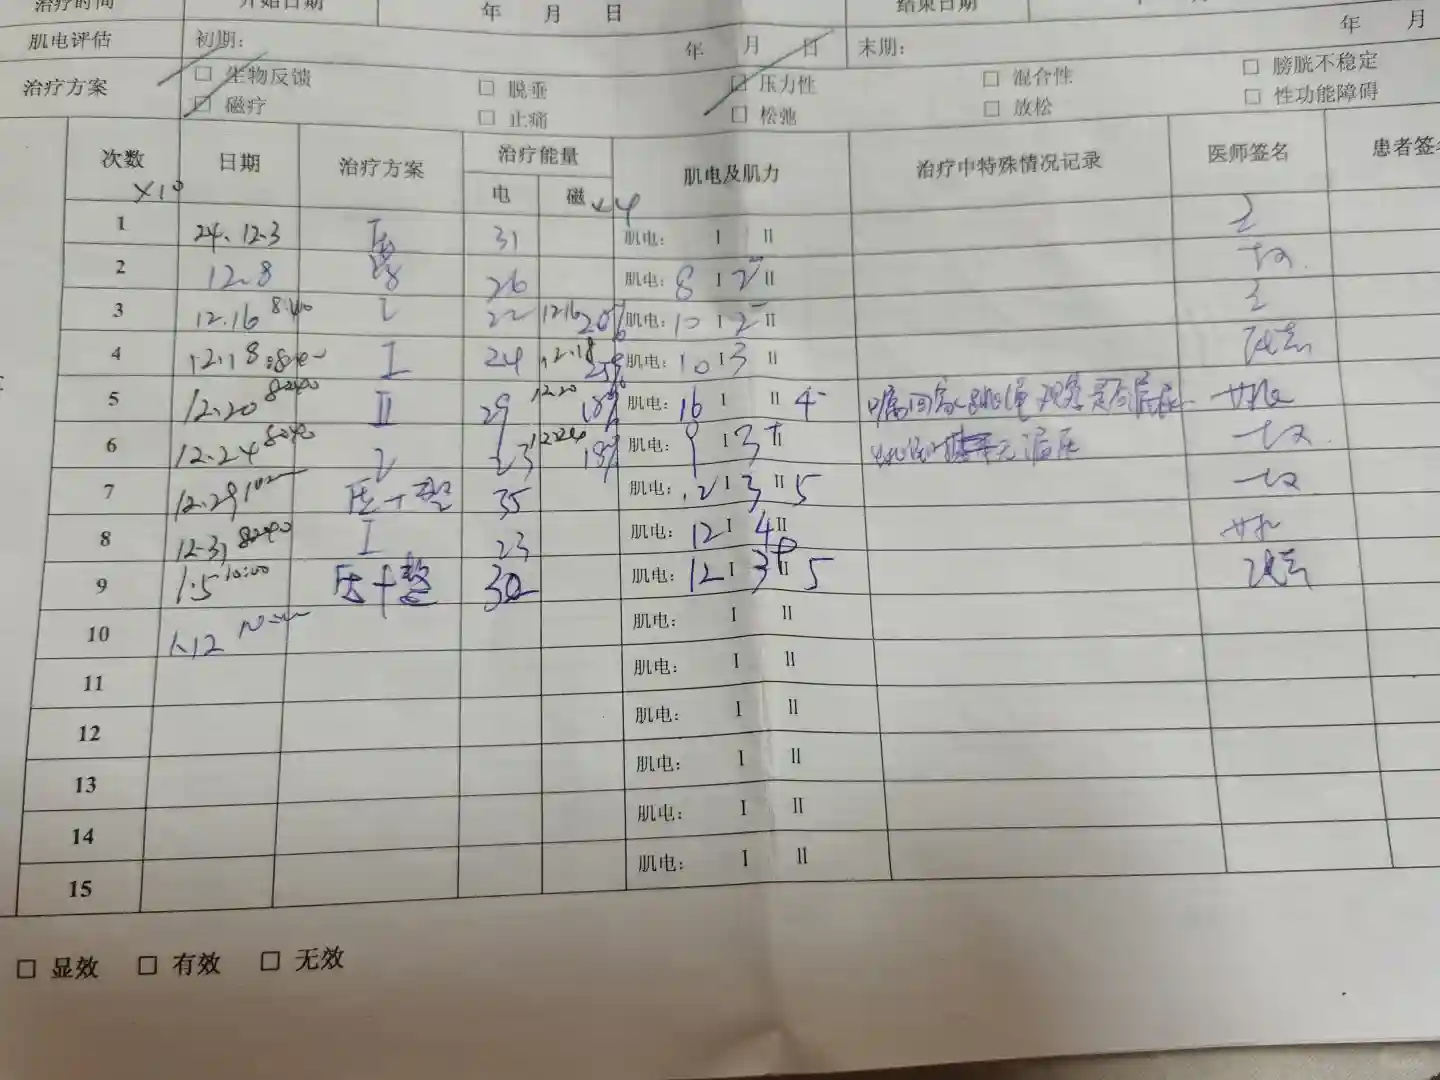 治疗时间 开始日期 年 月 日 结束日期
肌电评估 初期: 年 月 日 末期: 年 月
治疗方案 □ 生物反馈 □ 脱垂 □ 压力性 □ 混合性 □ 膀胱不稳定
□ 磁疗 □ 止痛 □ 松弛 □ 放松 □ 性功能障碍
次数 日期 治疗方案 治疗能量 肌电及肌力 治疗中特殊情况记录 医师签名 患者签名
×10 电 磁 ×4
1 24.12.3 31 肌电: I II
2 12.8 26 肌电: 8 I 2 II
3 12.16 8:40 22 12.16 20% 肌电: 10 I 2 II
4 12.18 I 24 12.18 25% 肌电: 10 I 3 II
5 12.20 8:40 II 29 12.20 18% 肌电: 16 I II 4
6 12.24 8:40 23 12.24 18% 肌电: 9 I 3 II
7 12.29 压+整 35 肌电: 12 I 3 II 5
8 12.31 8:40 I 23 肌电: 12 I 4 II
9 1.5 10:00 压+整 30 肌电: 12 I 3 II 5
10 1.12 肌电: I II
11 肌电: I II
12 肌电: I II
13 肌电: I II
14 肌电: I II
15 肌电: I II
□ 显效 □ 有效 □ 无效